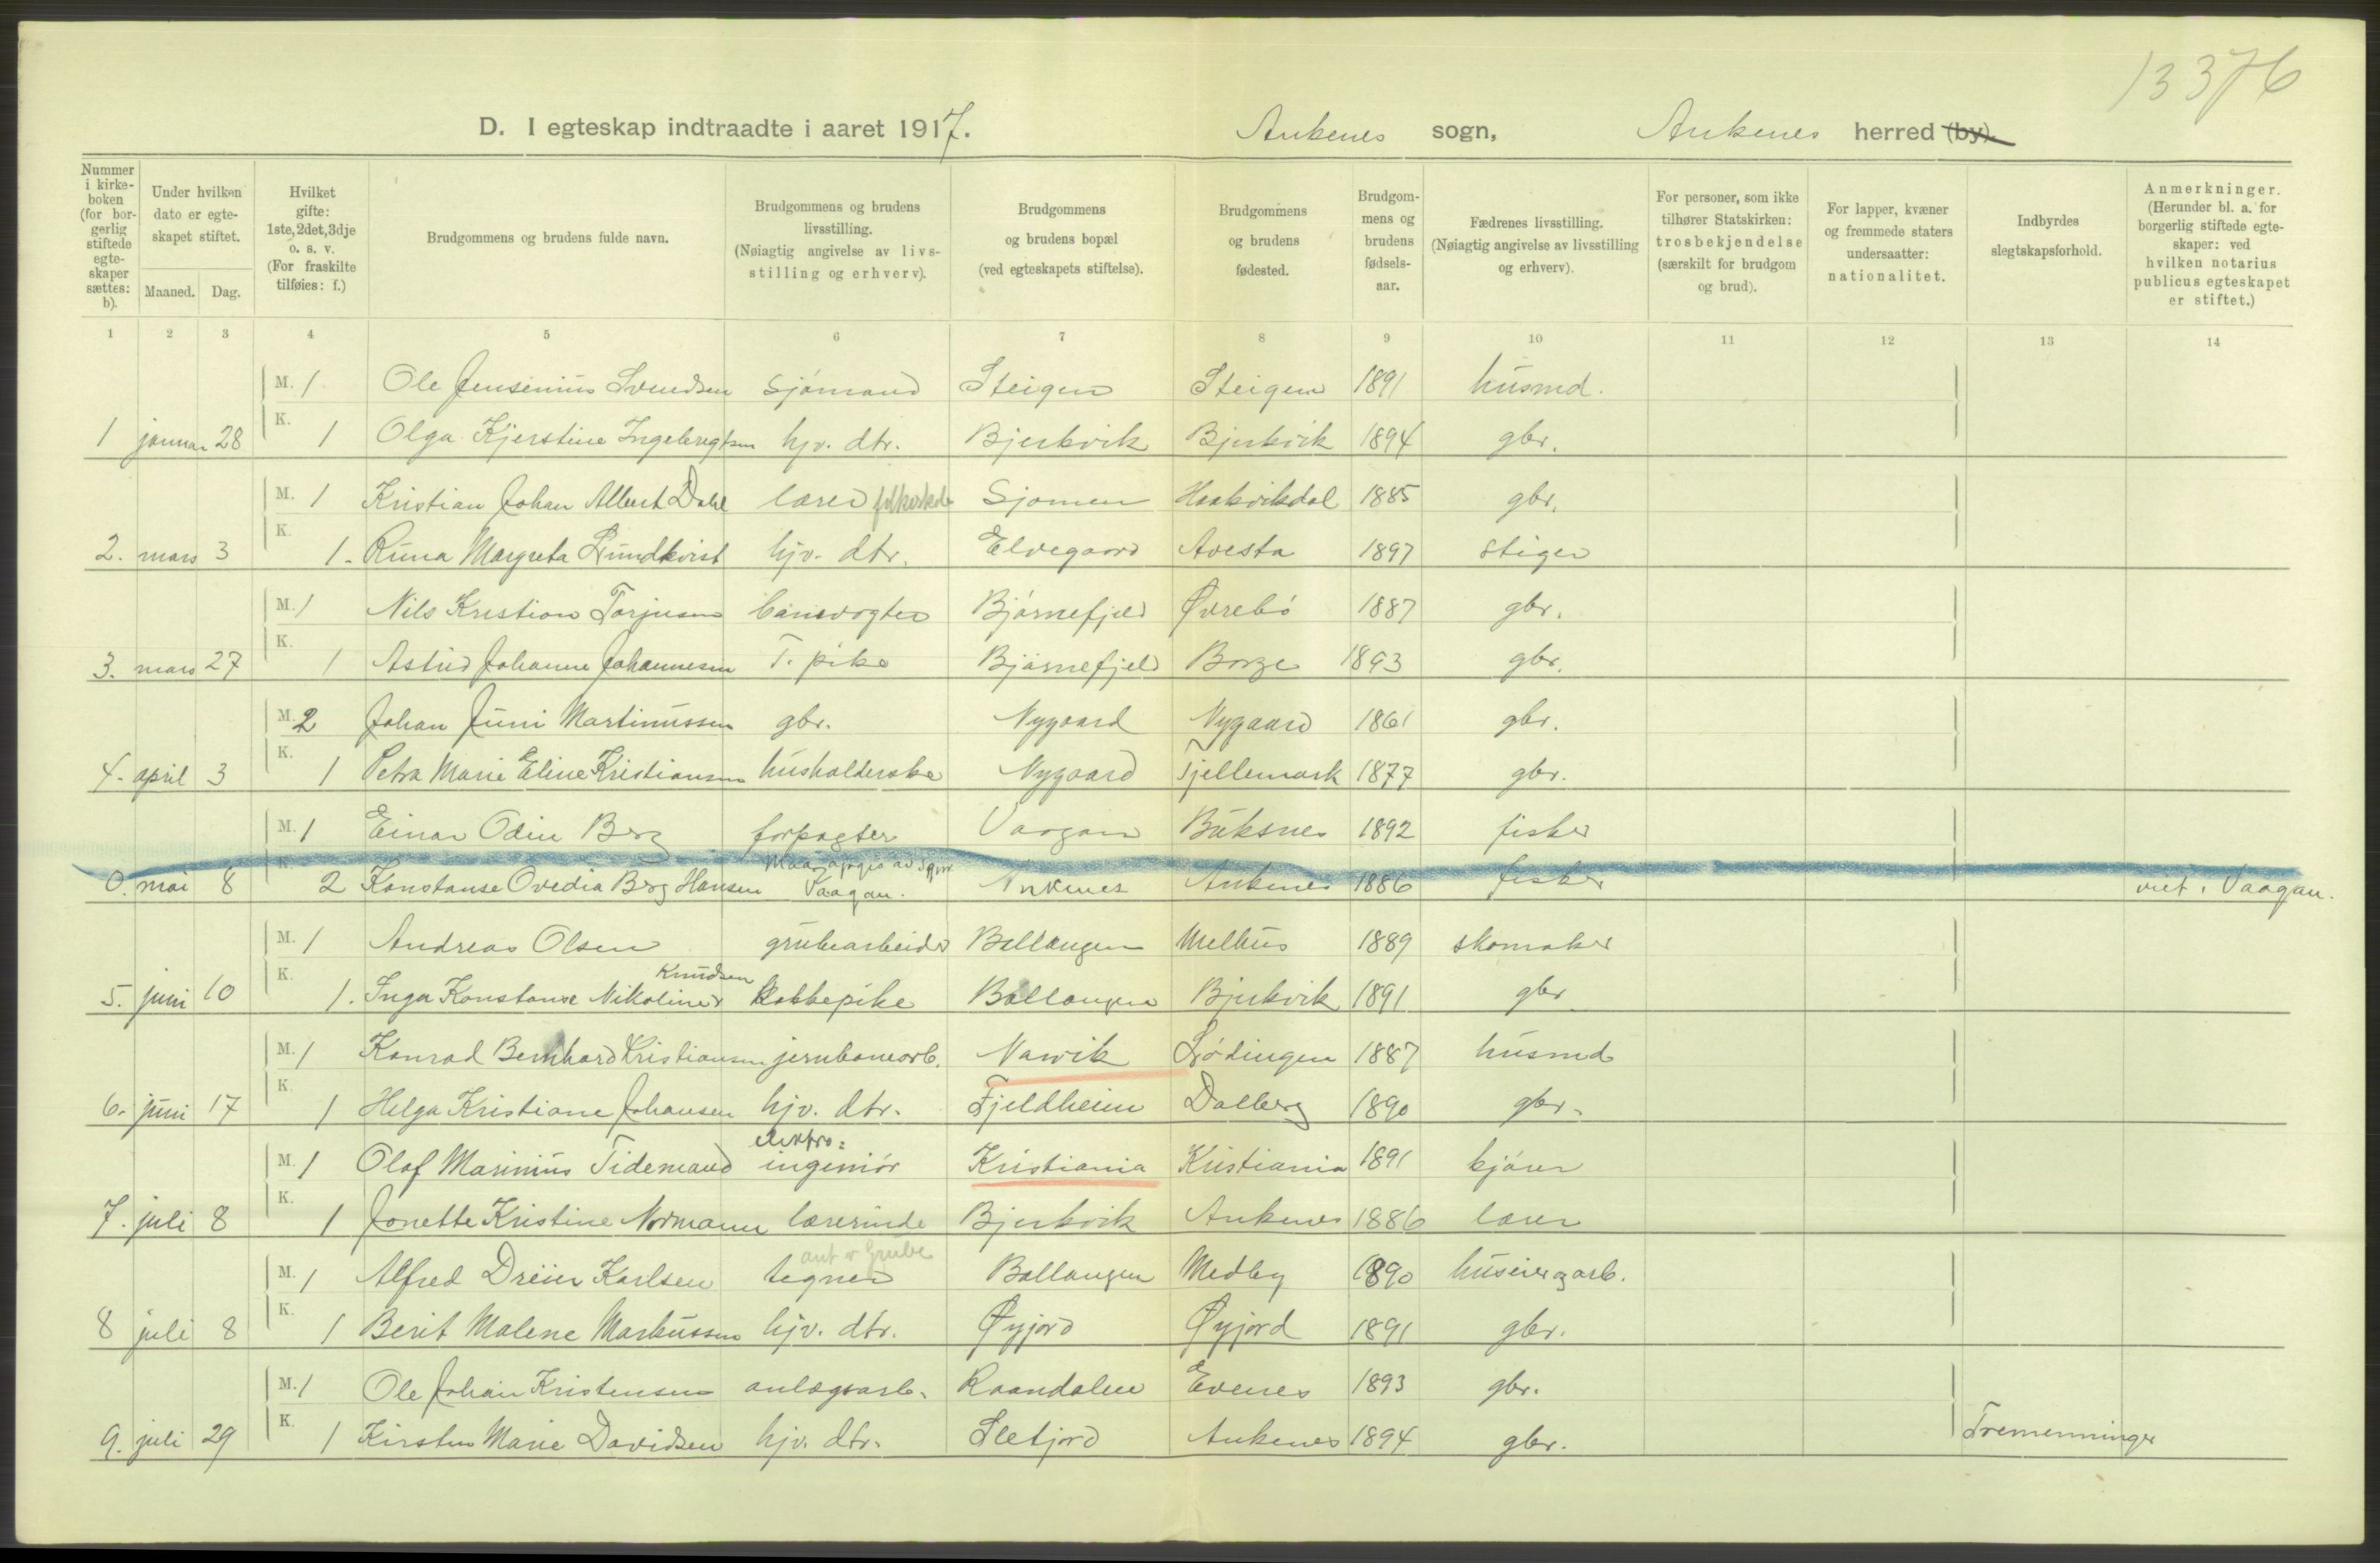 13376
D. I egteskap indtraadte i aaret 1917. Ankenes sogn, Ankenes herred (by).
Nummer i kirkeboken (for borgerlig stiftede egteskaper sættes: b).
Under hvilken dato er egteskapet stiftet.
Maaned. Dag.
Hvilket gifte: 1ste, 2det, 3dje o. s. v. (For fraskilte tilføies: f.)
Brudgommens og brudens fulde navn.
Brudgommens og brudens livsstilling. (Nøiagtig angivelse av livsstilling og erhverv).
Brudgommens og brudens bopæl (ved egteskapets stiftelse).
Brudgommens og brudens fødested.
Brudgommens og brudens fødselsaar.
Fædrenes livsstilling. (Nøiagtig angivelse av livsstilling og erhverv).
For personer, som ikke tilhører Statskirken: trosbekjendelse (særskilt for brudgom og brud).
For lapper, kvæner og fremmede staters undersaatter: nationalitet.
Indbyrdes slegtskapsforhold.
Anmerkninger. (Herunder bl. a. for borgerlig stiftede egteskaper: ved hvilken notarius publicus egteskapet er stiftet.)
1 2 3 4 5 6 7 8 9 10 11 12 13 14
M. 1 Ole Jensenius Svendsen sjømand Steigen Steigen 1891 husmd.
1 januar 28 K. 1 Olga Kjerstine Ingebregtsen hjv. dtr. Bjerkvik Bjerkvik 1894 gbr.
M. 1 Kristian Johan Albert Dahl lærer folkeskole Sjomen Haakvikdal 1885 gbr.
2. mars 3 K. 1. Runa Margreta Lundkvist hjv. dtr. Elvegaard Avesta 1897 stiger
M. 1 Nils Kristian Torjusen banevogter Bjørnefjeld Øvrebø 1887 gbr.
3. mars 27 K. 1 Astrid Johanne Johannesen T. pike Bjørnefjeld Borge 1893 gbr.
M. 2 Johan Juni Martinussen gbr. Nygaard Nygaard 1861 gbr.
4. april 3 K. 1 Petra Marie Eline Kristiansen husholderske Nygaard Fjellemark 1877 gbr.
M. 1 Einar Odin Berg forpagter Vaagan Buksnes 1892 fisker
0. mai 8 K. 2 Konstanse Ovedia Berg Hansen Vaagan. Ankenes Ankenes 1886 fisker viet i Vaagan.
M. 1 Andreas Olsen grubearbeider Ballangen Melhus 1889 skomaker
5. juni 10 K. 1. Inga Konstanse Nikoline Knudsen kokkepike Ballangen Bjerkvik 1891 gbr
M. 1 Konrad Bernhard Kristiansen jernbanearb. Narvik Lødingen 1887 husmd
6. juni 17 K. 1 Helga Kristiane Johansen hjv. dtr. Fjeldheim Dalberg 1890 gbr.
M. 1 Olaf Marinius Tidemand elektro= ingeniør Kristiania Kristiania 1891 kjører
7. juli 8 K. 1 Jonette Kristine Normann lærerinde Bjerkvik Ankenes 1886 lærer
M. 1 Alfred Dreier Karlsen tegner ant v Grube Ballangen Medby 1890 huseier og arb.
8 juli 8 K. 1 Berit Malene Markussen hjv. dtr. Øyjord Øyjord 1891 gbr.
M. 1 Ole Johan Kristensen anlægsarb. Raandalen Evenes 1893 gbr.
9. juli 29 K. 1 Kirsten Marie Davidsen hjv. dtr. Sletjord Ankenes 1894 gbr. Tremenninger